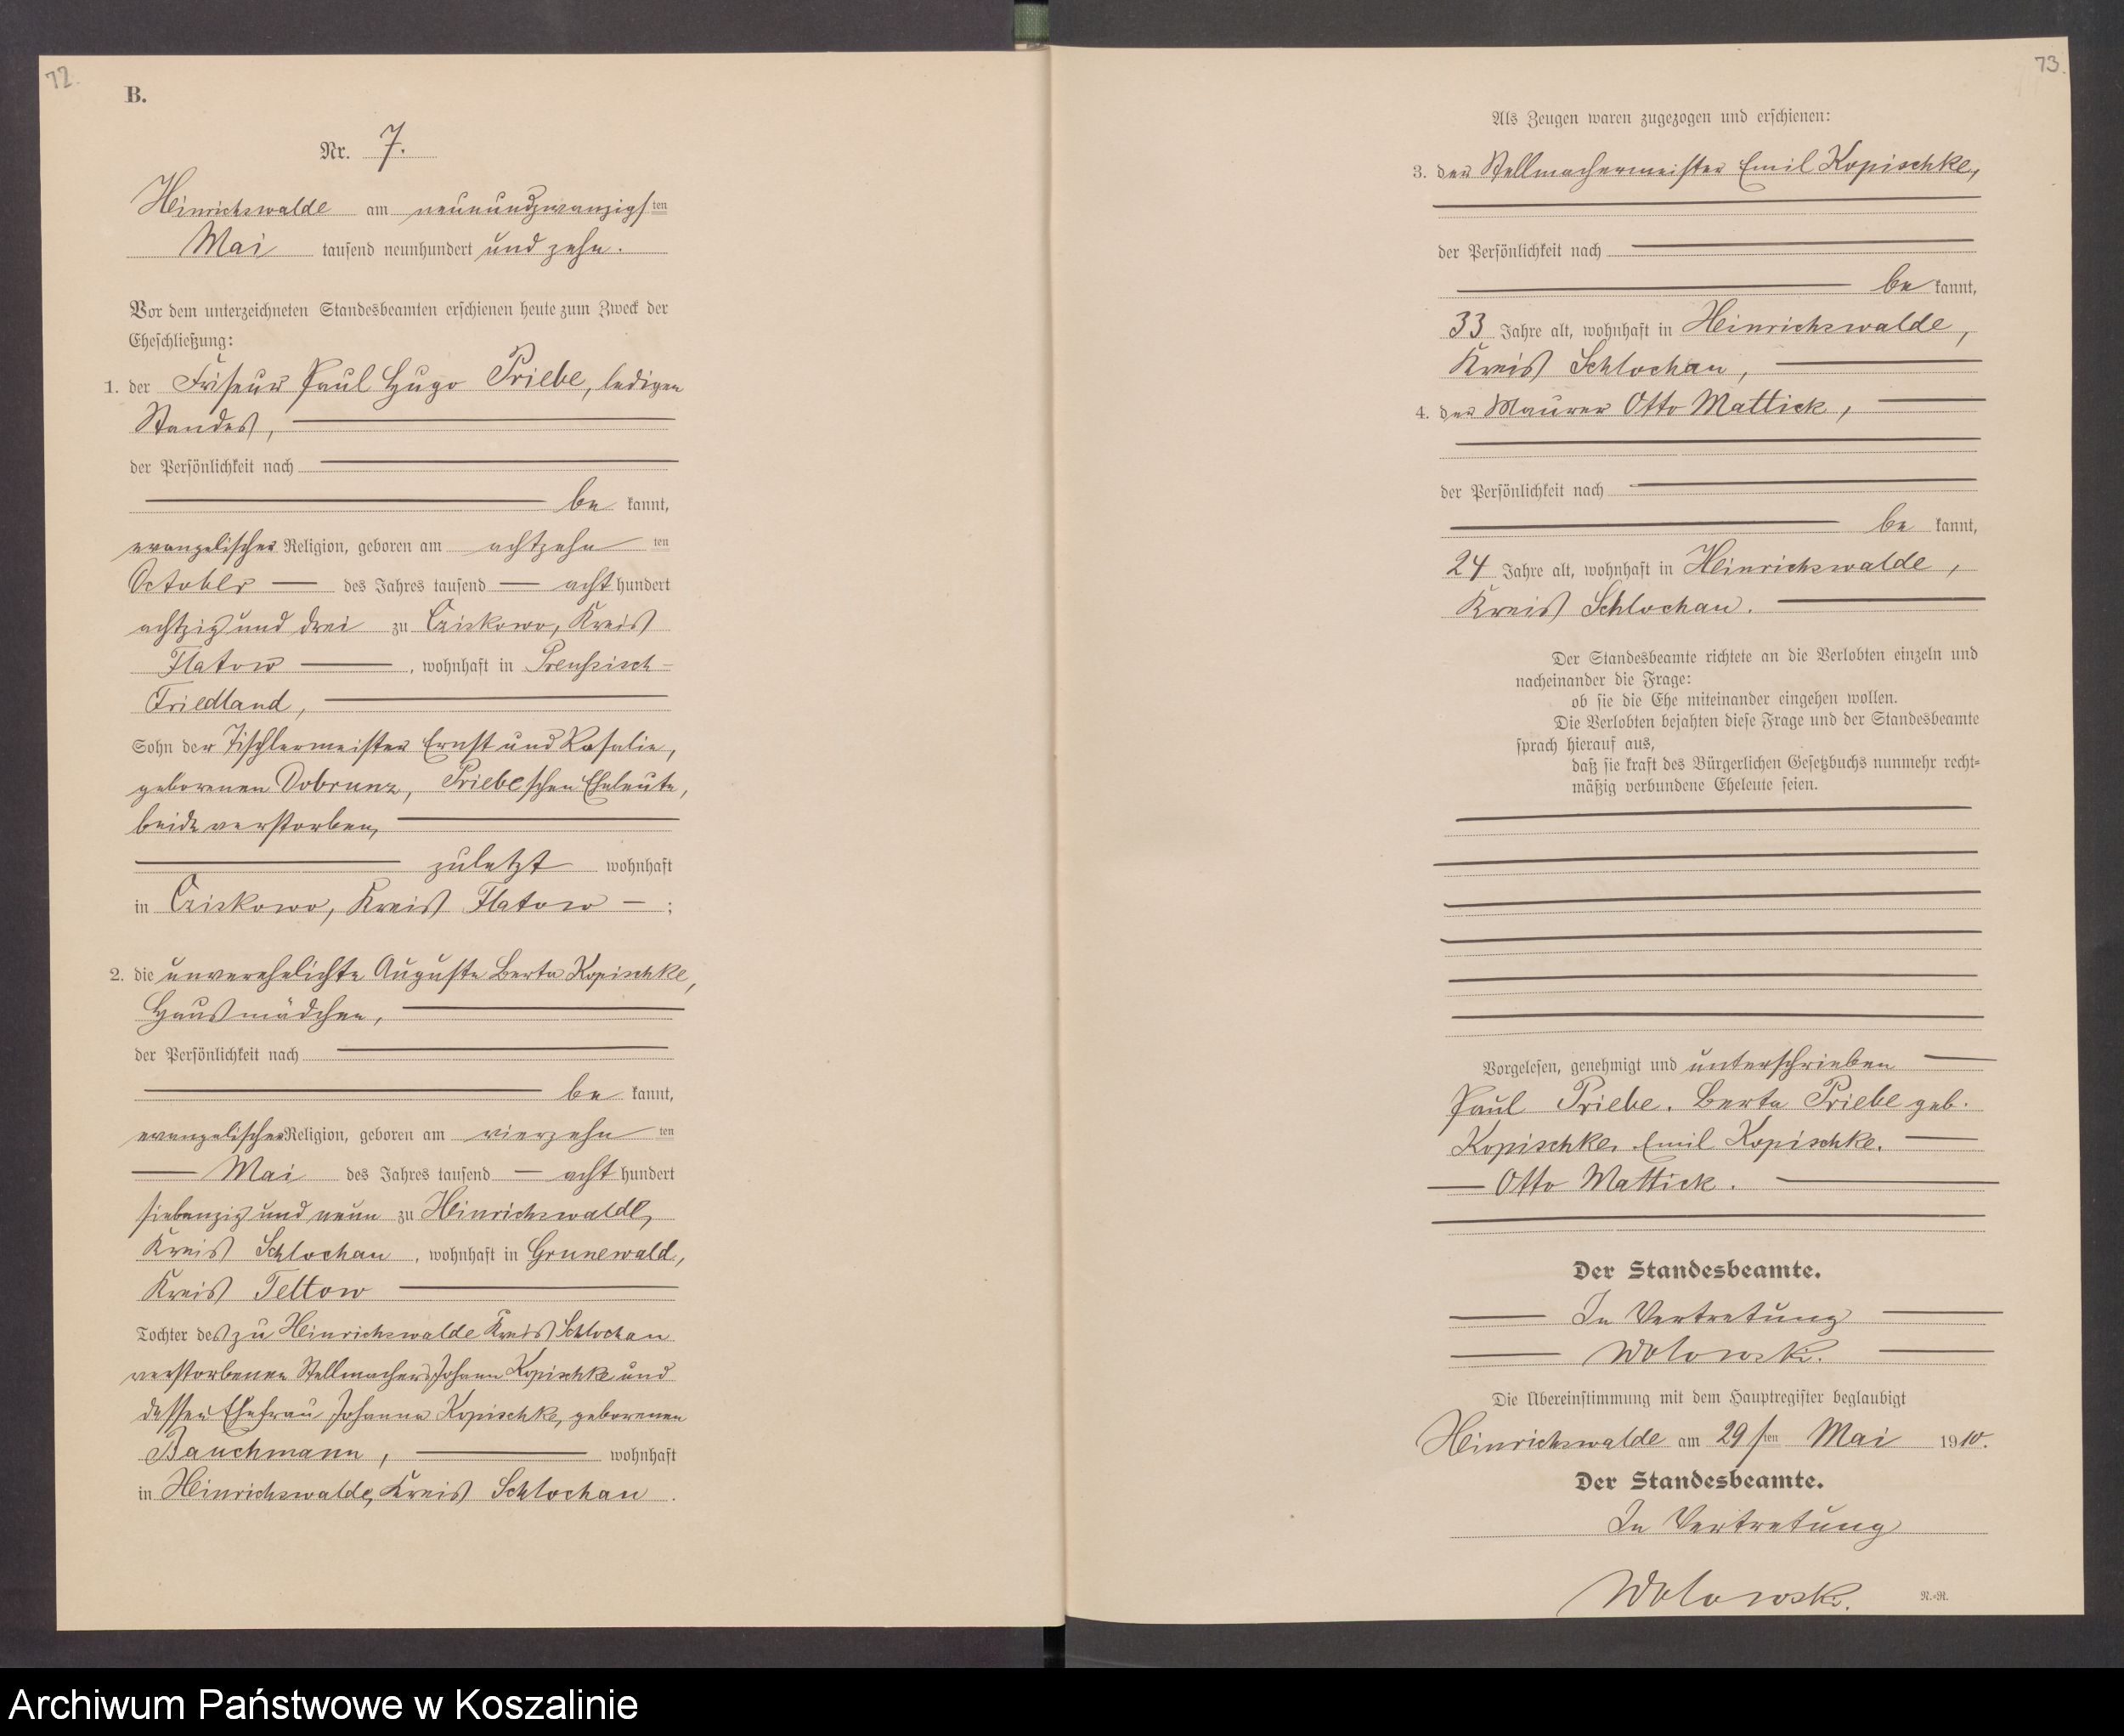 72.
B.
Nr. 7.
Heinrichswalde am neunundzwanzigsten
Mai tausend neunhundert und zehn.
Vor dem unterzeichneten Standesbeamten erschienen heute zum Zweck der
Eheschließung:
1. der Friseur Paul Hugo Priebe, ledigen
Standes,
der Persönlichkeit nach
be kannt,
evangelischer Religion, geboren am achtzehn ten
October des Jahres tausend acht hundert
achtzig und drei zu Cziskowo, Kreis
Flatow, wohnhaft in Preußisch-
Friedland,
Sohn der Tischlermeister Ernst und Rosalie,
geborenen Dobrunz, Priebeschen Eheleute,
beide verstorben,
zuletzt wohnhaft
in Cziskowo, Kreis Flatow – ;
2. die unverehelichte Auguste Berta Kopischke,
Hausmädchen,
der Persönlichkeit nach
be kannt,
evangelischer Religion, geboren am vierzehn ten
Mai des Jahres tausend acht hundert
siebenzig und neun zu Heinrichswalde,
Kreis Schlochau, wohnhaft in Grunewald,
Kreis Teltow
Tochter des zu Heinrichswalde Kreis Schlochau
verstorbenen Stellmachers Johann Kopischke und
dessen Ehefrau Johanna Kopischke, geborenen
Bauchmann, wohnhaft
in Heinrichswalde, Kreis Schlochau.
73.
Als Zeugen waren zugezogen und erschienen:
3. der Stellmachermeister Emil Kopischke,
der Persönlichkeit nach
be kannt,
33 Jahre alt, wohnhaft in Heinrichswalde,
Kreis Schlochau,
4. der Maurer Otto Mattick,
der Persönlichkeit nach
be kannt,
24 Jahre alt, wohnhaft in Heinrichswalde,
Kreis Schlochau.
Der Standesbeamte richtete an die Verlobten einzeln und
nacheinander die Frage:
ob sie die Ehe miteinander eingehen wollen.
Die Verlobten bejahten diese Frage und der Standesbeamte
sprach hierauf aus,
daß sie kraft des Bürgerlichen Gesetzbuchs nunmehr recht-
mäßig verbundene Eheleute seien.
Vorgelesen, genehmigt und unterschrieben
Paul Priebe. Berta Priebe geb.
Kopischke. Emil Kopischke.
Otto Mattick.
Der Standesbeamte.
In Vertretung
Wolowski.
Die Übereinstimmung mit dem Hauptregister beglaubigt
Heinrichswalde am 29sten Mai 1910.
Der Standesbeamte.
In Vertretung
Wolowski.
R.-R.
Archiwum Państwowe w Koszalinie